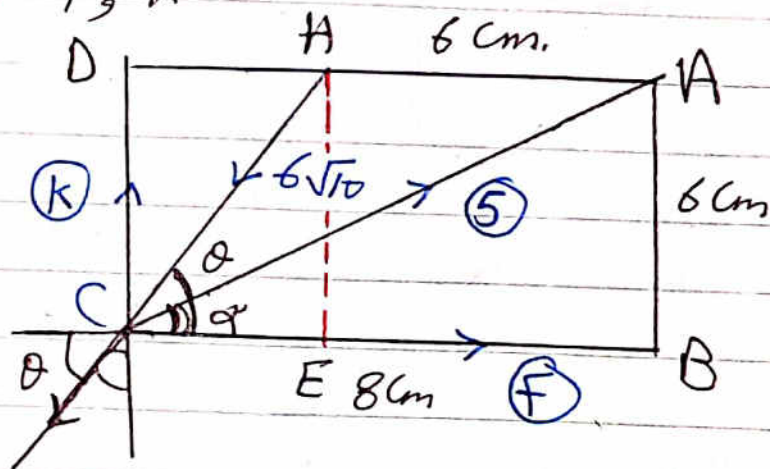 D H 6 Cm. A
K 6√10 5 6 Cm
θ
C α
θ E 8 Cm F B